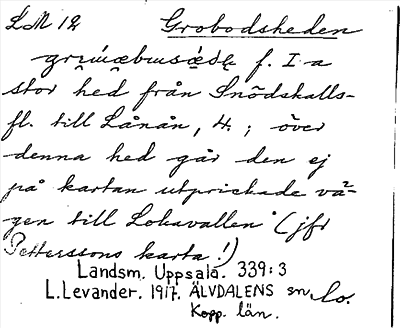 LM 12 Grobodsheden
f. I-a
stor hed från Snödskalls-
fl. till Lånån, 4.; över
denna hed går den ej
på kartan utprickade vä-
gen till Lokavallen (jfr
Petterssons karta!)
Landsm. Uppsala. 339:3
L. Levander. 1917. ÄLVDALENS sn. Lo.
Kopp. län.